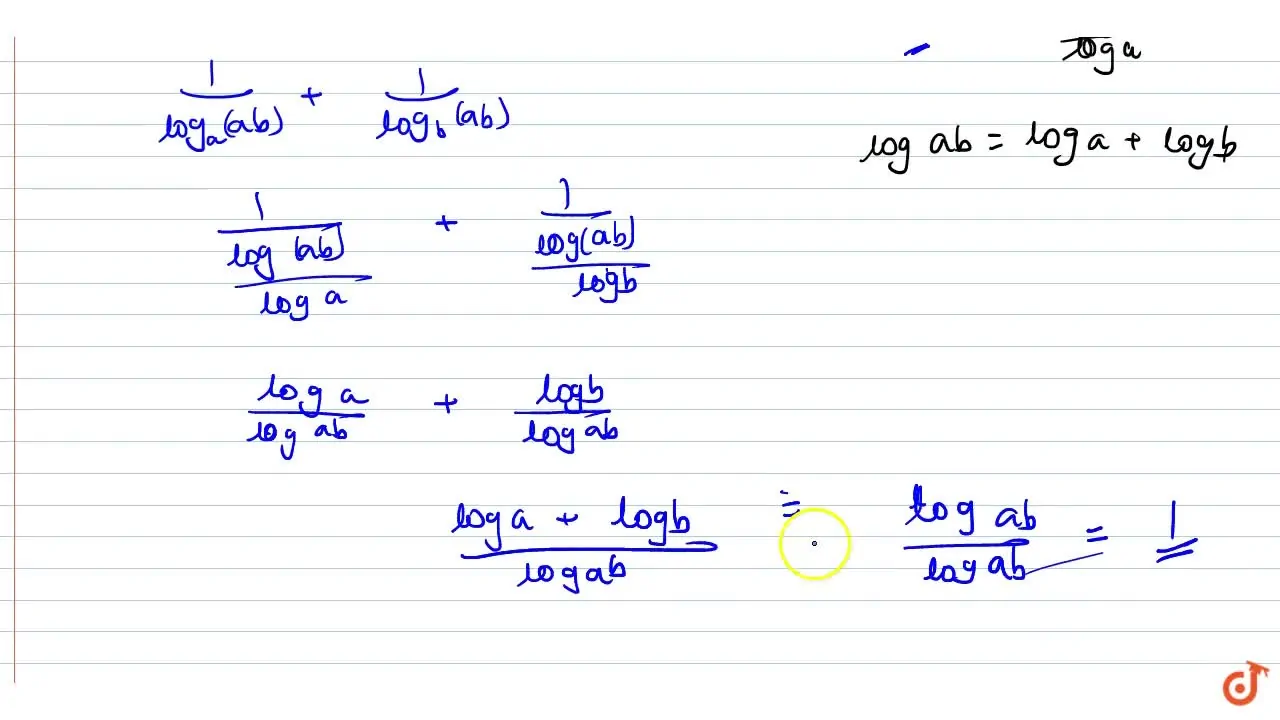 log a
log ab = log a + log b
1/logₐ(ab) + 1/log_b(ab)
1/(log (ab)/log a) + 1/(log(ab)/log b)
log a/log ab + log b/log ab
(log a + log b)/log ab = log ab/log ab = 1